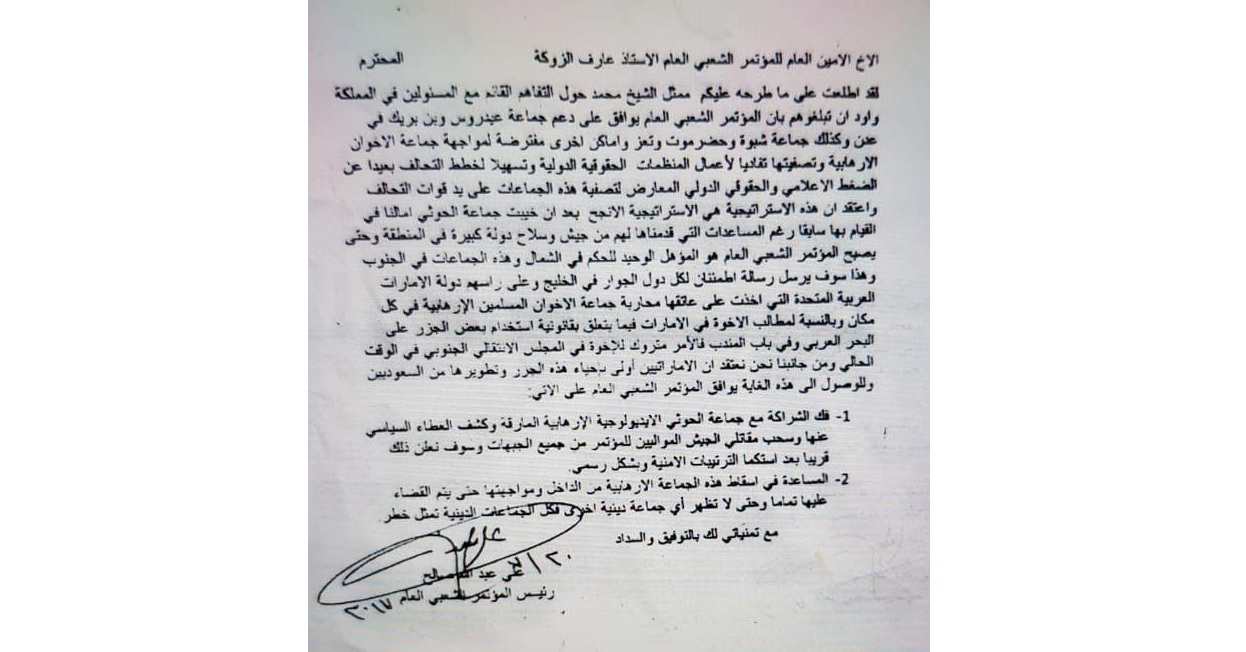 الاخ الامين العام للمؤتمر الشعبي العام الاستاذ عارف الزوكة المحترم
لقد اطلعت على ما طرحه عليكم ممثل الشيخ محمد حول التفاهم القائم مع المسئولين في المملكة
واود ان تبلغوهم بان المؤتمر الشعبي العام يوافق على دعم جماعة عيدروس وبن بريك في
عدن وكذلك جماعة شبوة وحضرموت وتعز واماكن اخرى مفترضة لمواجهة جماعة الاخوان
الارهابية وتصفيتها تفاديا لأعمال المنظمات الحقوقية الدولية وتسهيلا لخطط التحالف بعيدا عن
الضغط الاعلامي والحقوقي الدولي المعارض لتصفية هذه الجماعات على يد قوات التحالف
واعتقد ان هذه الاستراتيجية هي الاستراتيجية الانجح بعد ان خيبت جماعة الحوثي امالنا في
القيام بها سابقا رغم المساعدات التي قدمناها لهم من جيش وسلاح دولة كبيرة في المنطقة وحتى
يصبح المؤتمر الشعبي العام هو المؤهل الوحيد للحكم في الشمال وهذه الجماعات في الجنوب
وهذا سوف يرسل رسالة اطمئنان لكل دول الجوار في الخليج وعلى راسهم دولة الامارات
العربية المتحدة التي اخذت على عاتقها محاربة جماعة الاخوان المسلمين الإرهابية في كل
مكان وبالنسبة لمطالب الاخوة في الامارات فيما يتعلق بقانونية استخدام بعض الجزر على
البحر العربي وفي باب المندب فالأمر متروك للإخوة في المجلس الانتقالي الجنوبي في الوقت
الحالي ومن جانبنا نحن نعتقد ان الاماراتيين أولى بإحياء هذه الجزر وتطويرها من السعوديين
وللوصول الى هذه الغاية يوافق المؤتمر الشعبي العام على الاتي:
1- فك الشراكة مع جماعة الحوثي الايديولوجية الإرهابية المارقة وكشف الغطاء السياسي
عنها وسحب مقاتلي الجيش المواليين للمؤتمر من جميع الجبهات وسوف نعلن ذلك
قريبا بعد استكما الترتيبات الامنية وبشكل رسمي.
2- المساعدة في اسقاط هذه الجماعة الارهابية من الداخل ومواجهتها حتى يتم القضاء
عليها تماما وحتى لا تظهر أي جماعة دينية اخرى فكل الجماعات الدينية تمثل خطر
مع تمنياتي لك بالتوفيق والسداد
علي عبد الله صالح
رئيس المؤتمر الشعبي العام ٢٠١٧